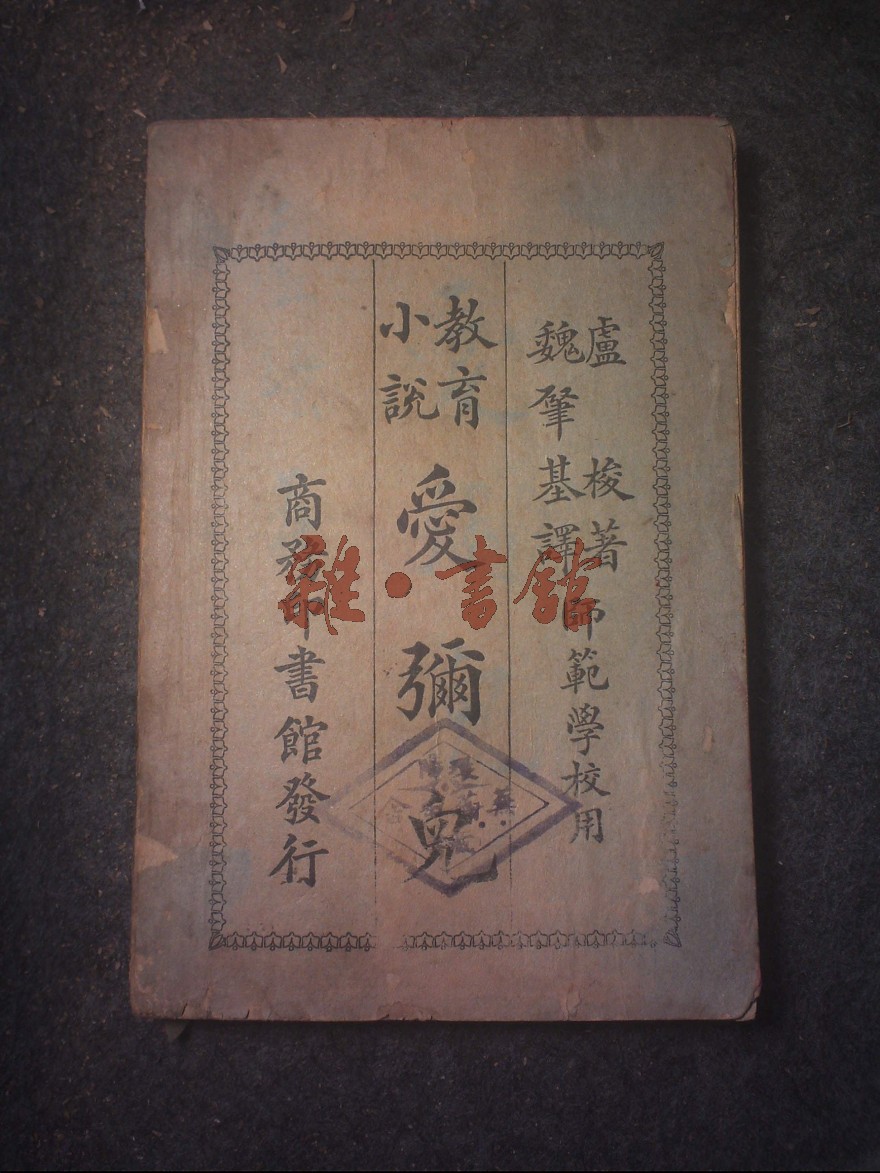 盧梭著
魏肇基譯
師範學校用
教育
小說
愛彌兒
商務印書館發行
雜·書館